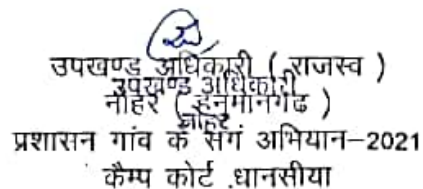 उपखण्ड अधिकारी ( राजस्व )
उपखण्ड अधिकारी
नोहर ( हनुमानगढ )
नोहर
प्रशासन गांव के संग अभियान–2021
कैम्प कोर्ट .धानसीया